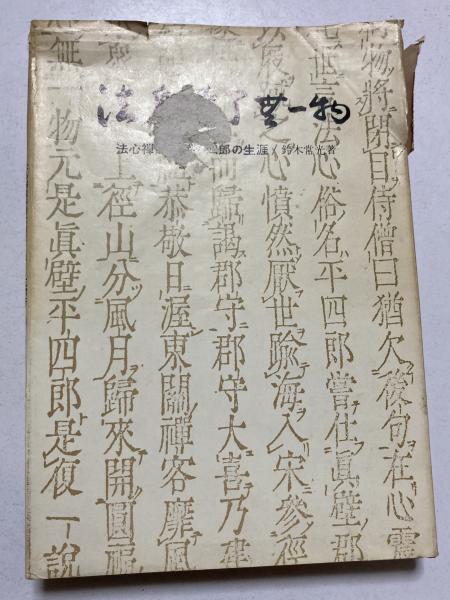 法 了無一物
法心禅 郎の生涯/鈴木常光著
物將閉目侍僧曰猶欠後句在心
世言法心俗名平四郎嘗仕眞壁郡
之心憤然厭世踰海入宋參徑
歸謁郡守郡守大喜乃建
恭敬日渥東關禪客靡風
上徑山分風月歸來開圓
無一物元是眞壁平四郎是復一說